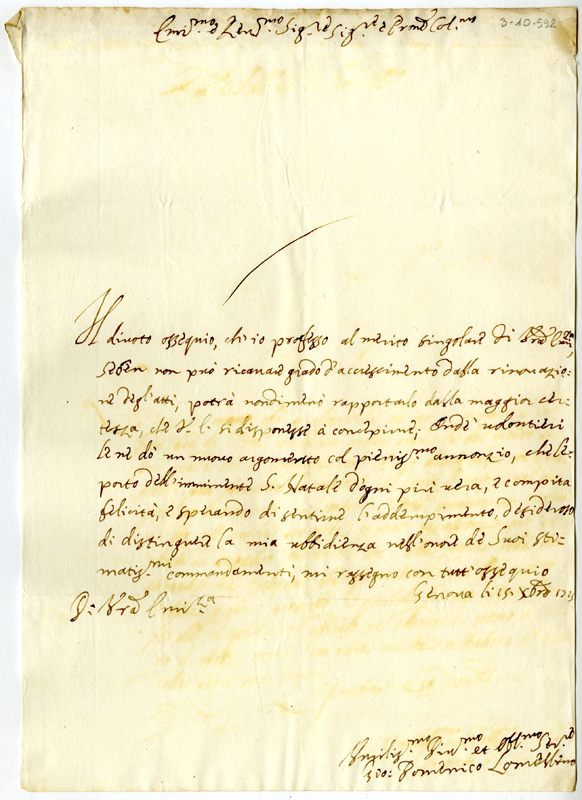 Emin.mo e Rev.mo Sig.re Sig.re e Pron Col.mo
3-10-592
Il divoto ossequio, che io professo al merito singolare di Vra Em.za,
seben non può ricavare grado d'accrescimento dalla rinovazio-
ne degl'atti, potrà nondimeno rapportarlo dalla maggior cer-
tezza, che V. E. si disponesse à concepirne; Onde volontieri
le ne dò un nuovo argomento col pienis.mo annonzio, che le
porto dell'imminente S. Natale d'ogni più vera, e compita
felicità, e sperando di sentirne l'addempimento, desideroso
di distinguere la mia ubbidienza nell'onore de Suoi sti-
matis.mi commandamenti, mi rassegno con tutt'ossequio
Di Vra Emi.za
Genova li 15 Xbre
Umilis.mo Div.mo et Obl.mo Ser.re
Gio: Domenico Lomellino